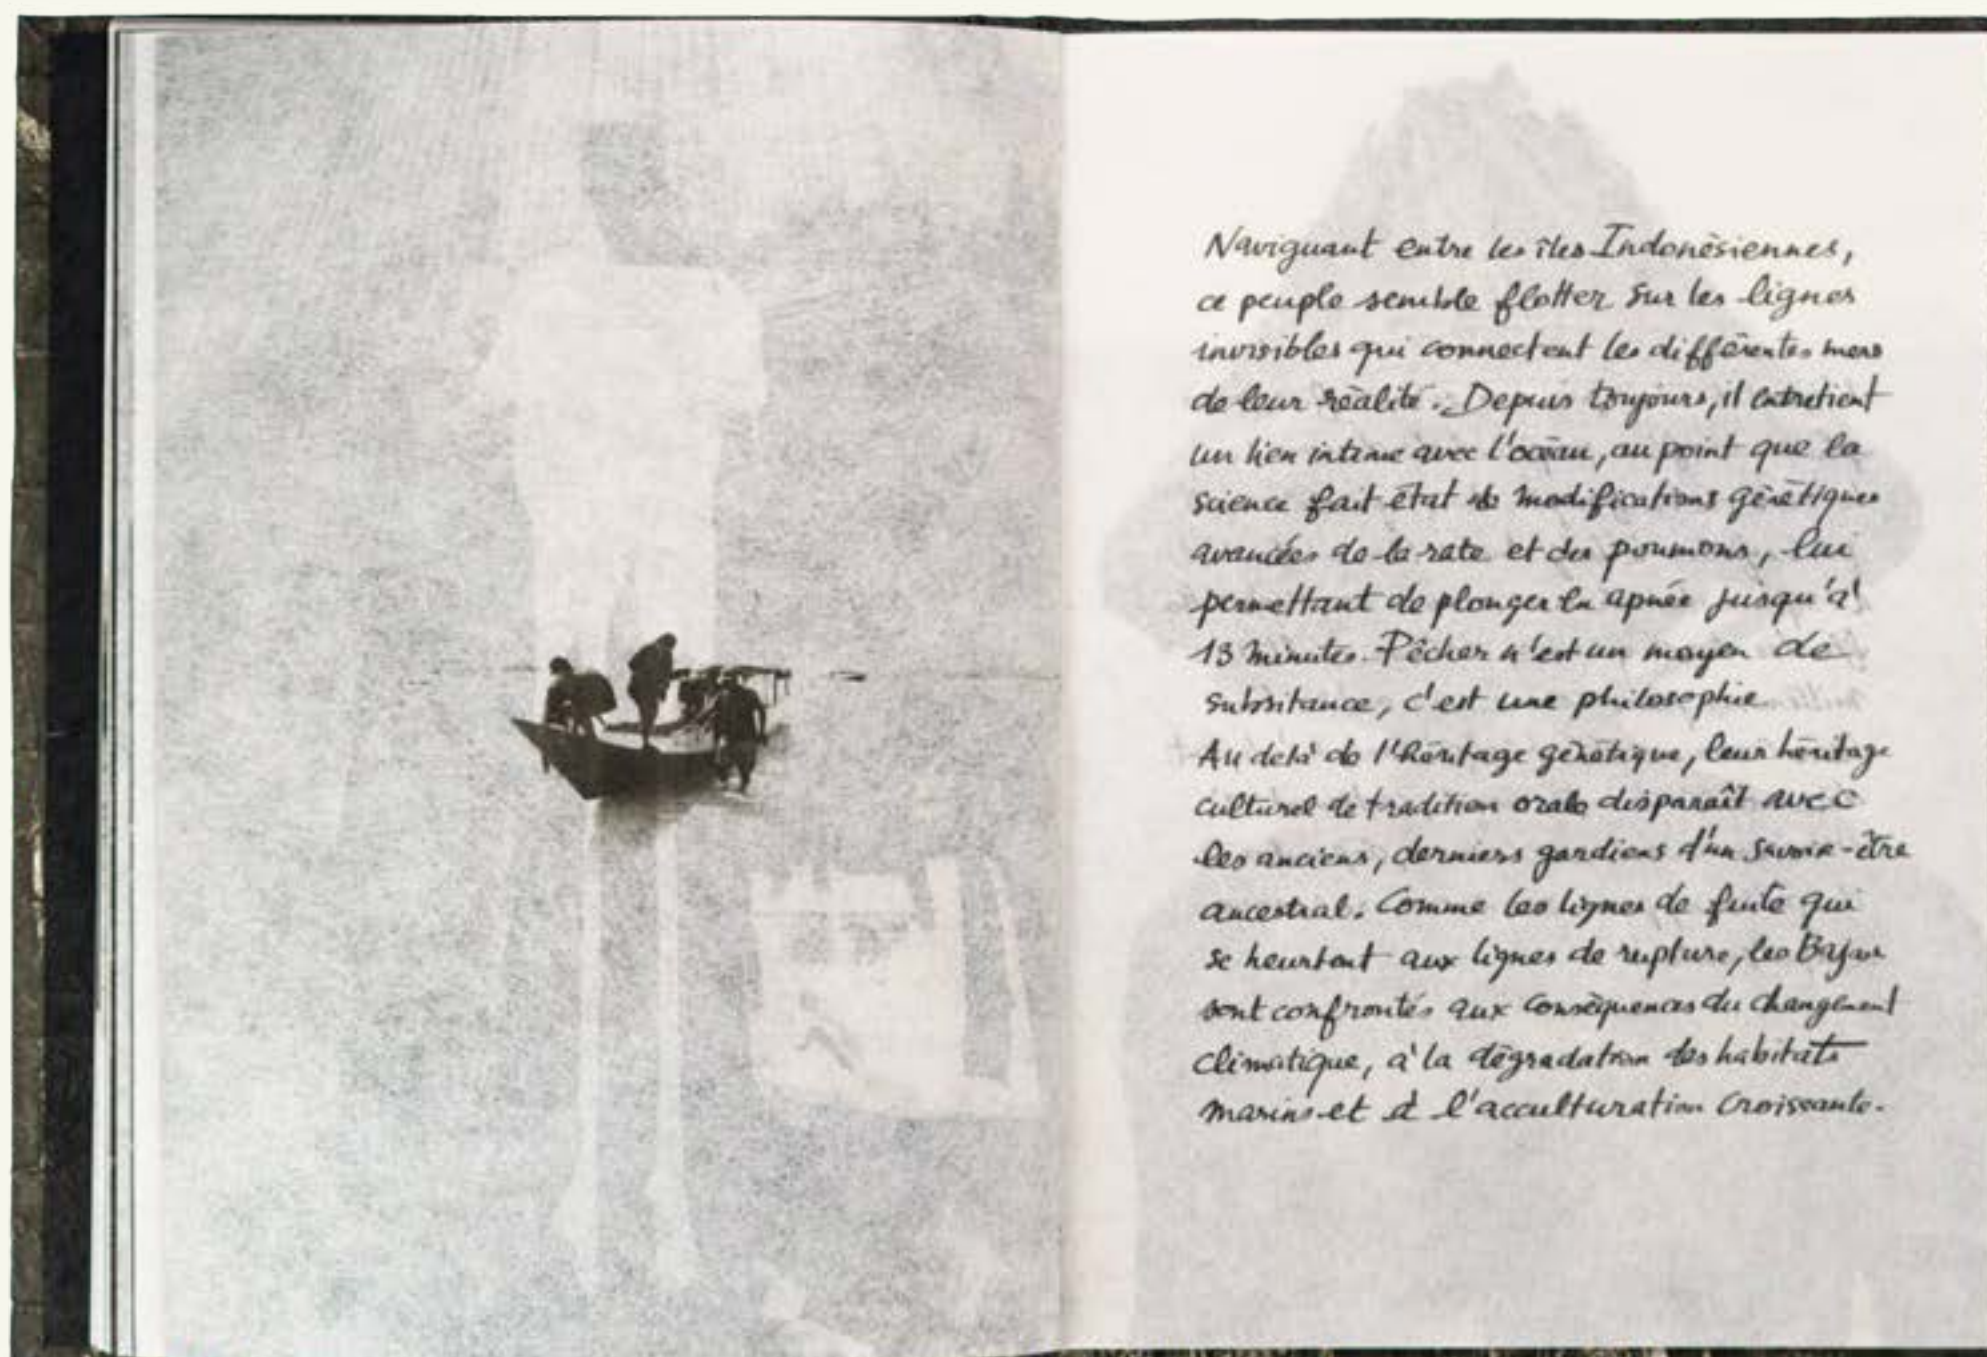 Naviguant entre les îles Indonésiennes,
ce peuple semble flotter sur les lignes
invisibles qui connectent les différentes mers
de leur réalité. Depuis toujours, il entretient
un lien intime avec l'océan, au point que la
science fait état de modifications génétiques
avancées de la rate et des poumons, lui
permettant de plonger en apnée jusqu'à
13 minutes. Pêcher n'est un moyen de
subsitance, c'est une philosophie
Au delà de l'héritage génétique, leur héritage
culturel de tradition orale disparaît avec
les anciens, derniers gardiens d'un savoir-être
ancestral. Comme les lignes de fuite qui
se heurtent aux lignes de rupture, les Bajau
sont confrontés aux conséquences du changement
climatique, à la dégradation des habitats
marins et à l'acculturation croissante.